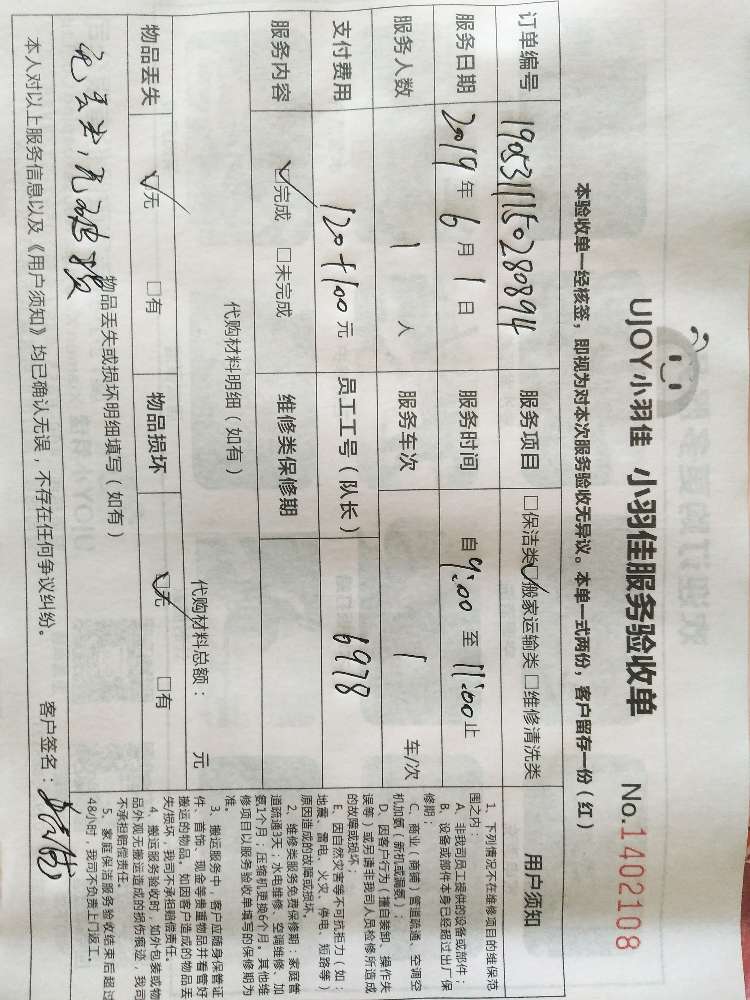 UJOY小羽佳 小羽佳服务验收单 No.1402108
本验收单一经核签，即视为对本次服务验收无异议。本单一式两份，客户留存一份（红）
订单编号 1905311150280894 服务项目 □保洁类☑搬家运输类 □维修清洗类
服务日期 2019 年 6 月 1 日 服务时间 自 9:00 至 11:00 止
服务人数 1 人 服务车次 1 车/次
支付费用 120+100 元 员工工号（队长） 6978
服务内容 ☑完成 □未完成 维修类保修期
代购材料明细（如有） 代购材料总额： 元
物品丢失 ☑无 □有 物品损坏 ☑无 □有
物品丢失或损坏明细填写（如有）
无丢失，无破损
本人对以上服务信息以及《用户须知》均已确认无误，不存在任何争议纠纷。 客户签名：
用户须知
1、下列情况不在维修项目的维保范
围之内：
A、非我司员工提供的设备或部件；
B、设备或部件本身已经超过出厂保
修期；
C、商业（商铺）管道疏通、空调空
机加氨（新机或漏氨）；
D、因客户行为（擅自装卸、操作失
误等）或另请非我司人员检修所造成
的故障或损坏；
E、因自然灾害等不可抗拒力（如：
地震、雷电、火灾、停电、短路等）
原因造成的故障或损坏。
2、维修类服务免费保修期：家庭管
道疏通7天；水电维修、空调维修、加
氨1个月；压缩机更换6个月。其他维
修项目以服务验收单填写的保修期为
准。
3、搬运服务中，客户应随身保管证
件、首饰、现金等贵重物品并看管好
搬运的物品。如因客户造成的物品丢
失/损坏，我司不承担赔偿责任。
4、搬运服务验收时，如外包装或物
品外观无搬运造成的损伤痕迹，我司
不承担赔偿责任。
5、家庭保洁服务验收结束后超过
48小时，我司不负责上门返工。